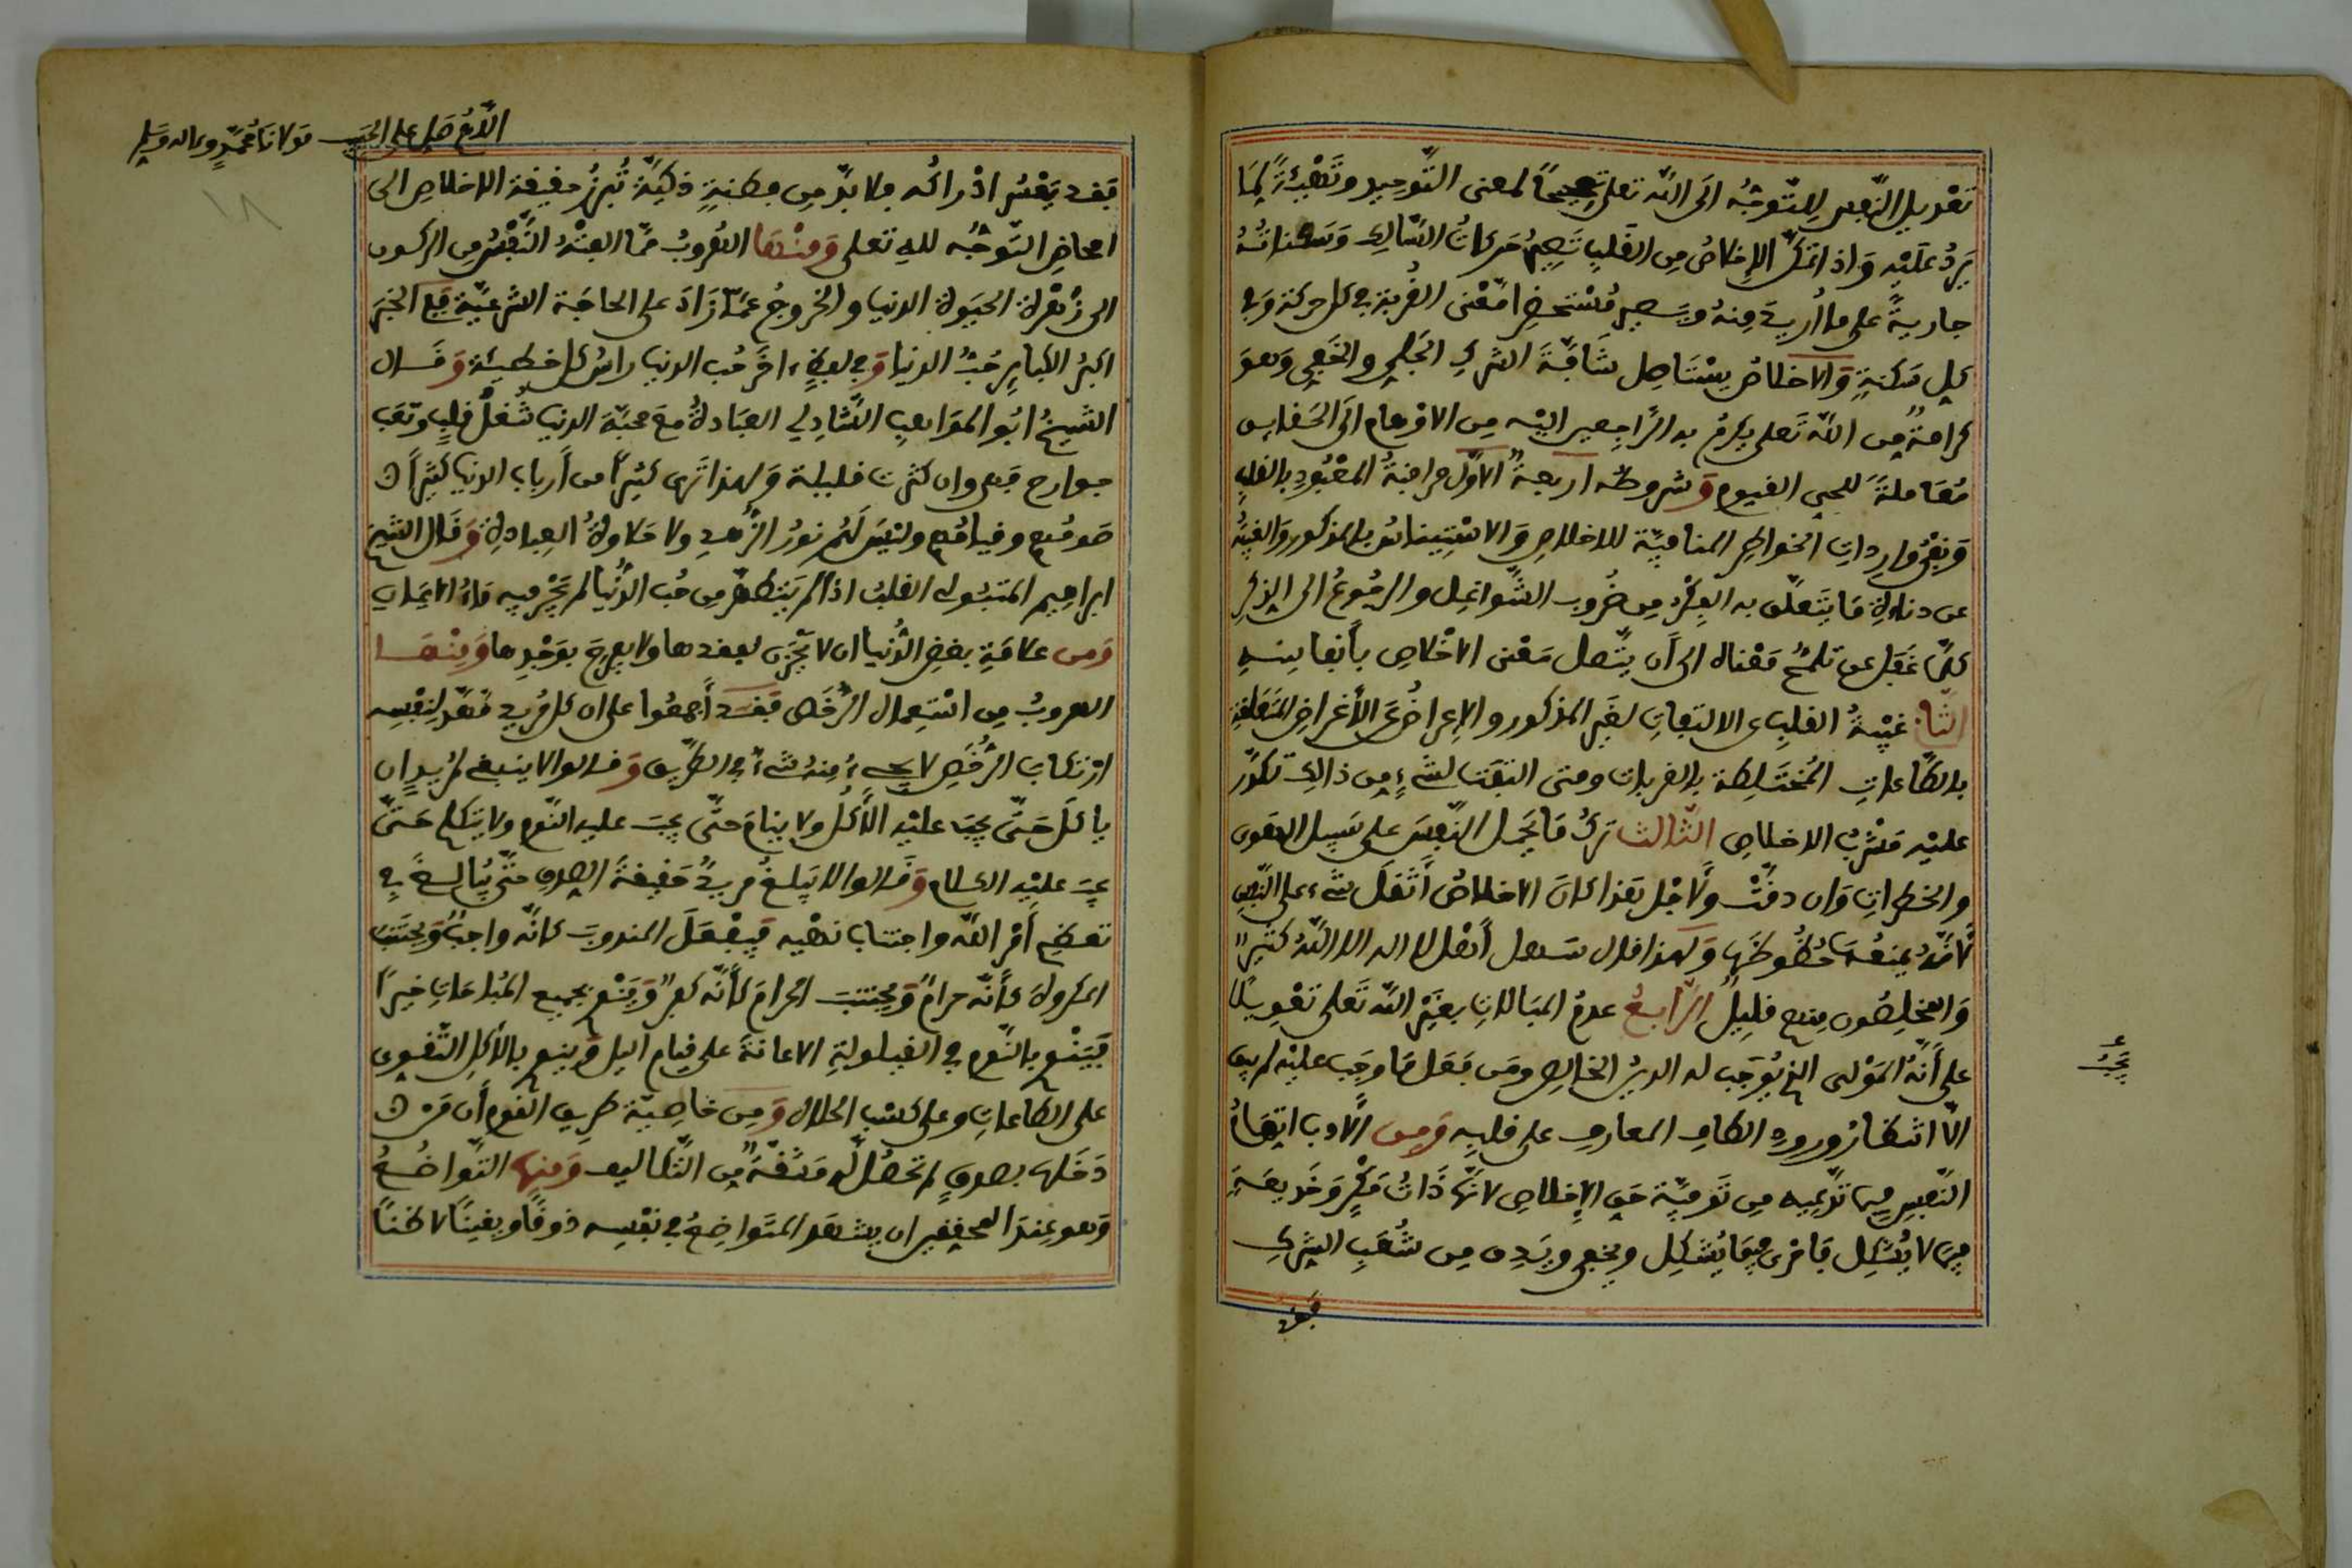 تعديل النّفس للتّوجّه الى الله تعلى تصحيحًا لمعنى التّوحيد وتَهْيِئَةً لِمَا
يَرِدُ عَلَيْهِ وَاذا تمكّن الإخلاصُ من القَلْبِ تَصِيرُ حَرَكاتُ السَّالِكِ وَسَكَنَاتُهُ
جاريةً على ما أُريد مِنهُ ويَصير مُسْتَحْضِرًا مَعْنى القُربة في كل حركة وفي
كل سَكنةٍ وَالاخلاصُ يسْتَاصِل شَافَةَ الشركِ الجَلِي والخَفِي وَهو
كرامةٌ من الله تَعلى يكرمُ به الرَّاجعين اليْه من الاوْهام الَى الحَقايق
مُعَاملةً للحي القيوم وَشروطه اربعةٌ الاَوَّل مراقبةُ المعْبُودِ بالقلب
وَنفْىُ وارداتِ الخواطر المنافيّة للاخلاص وَالاسْتيناسُ بالمذكور وَالغيبةُ
عن مَا يَتَعلّق به الفِكْرُ من ضُروب الشَّواغل والرجُوعُ الى الذِكْرِ
كلّمَا غَفَل عن تلمُّحِ مَعْناه الى أَن يتَّصل مَعْنى الاخْلاص بأَنفاسِه
الثّاني غَيْبةُ القلبِ عن الالتفاتِ لغَيْر المذكور والاِعراضُ عَن الأَغراضِ المُتَعَلّقة
بالطّاعاتِ المُخْتَلِطَة بالقربات ومتى التفَتَ لشيْءٍ مِن ذالك تكدّر
عليْه مَشْرَبُ الاخلاص الثّالث تركُ مَا يَحْمل النّفسَ على سَبيل الهَوى
والخطراتِ وَان دقّتْ ولأجْل هَذا كانَ الاخلاصُ أَثْقَل شيء على النّفس
لأَنّهُ يمنعُهَا حُظُوظَهَا وَلهذا قال سَهل أَهْلُ لا اله الا اللهُ كثيرٌ
وَالمخلِصُون منهم قليلٌ الرّابعُ عدمُ المبَالاتِ بغَيْر الله تَعلى تعْويلاً
على أَنّهُ المَوْلى الذي يُوجَب له الدينُ الخالص ومَن فَعَل مَا وجَب عليْه لم يبق
الاّ انتظارُ ورودِ الطاف المعارف على قلبِه وَمِن الأَدب اتّهامُ
النّفسِ فيما تدّعِيه من تَوفيّة حَقِ الإخلاص لانّها ذَاتُ مَكْرٍ وَخَديعَةٍ
فيمَا لا يُشْكِل فَاحْرى فيمَا يُشكِل ويَخفى ويَدِق مِن شُعَبِ الشركِ
فقد
يَجبُ
اللّهُمّ صَلِ على الحَبيب مَولانا مُحمّدٍ وءاله وَسَلِم
١٨
فقد يَعْسُر ادْراكُه فلا بدّ مِن فِطنةٍ ذكيّة تُبرِزُ حقيقة الاخلاصِ الى
امحاضِ التّوجُه للهِ تعلى وَمنْهَا الهُروبُ ممّا الِفَتْهُ النَّفْسُ مِن الركون
الى زهْرة الحيَوة الدنيا والخروجُ عَمّا زَادَ على الحاجَة الشرعيّة فَفِي الخبَر
اكبَرُ الكبايرِ حُبُّ الدنيا وَفي لفظٍ ءاخَر حُب الدنيا راسُ كل خطيئةٍ وَقَال
الشيخُ ابُو المَوَاهبِ الشَّاذِلي العبَادةُ مَع محبّة الدنيا شُغلُ قلبٍ وتعَب
جوارح فهي وان كثرت قليلة وَلهذا تَرى كثيرًا من أَرباب الدنيا كثيرًا
صومُهم وقيامُهم وليْسَ لَهُم نورُ الزُّهدِ ولا حَلاوةُ العِبادة وَقَال الشيخ
ابراهيم المتبُولى القلبُ اذا لم يَتَطهّر مِن حُب الدُّنْيا لم يَجْرِ فيه مَاءُ الاِيمَان
وَمن علامَةِ بغضِ الدُّنيا ان لا يَحْزن لفقدها ولا يفرحَ بوَجْدِها وَمِنْهَا
الهروبُ مِن اسْتِعمال الرُّخَص فقدَ أَجمعُوا على ان كل مُريد مَهّد لنفسِه
ارْتكابَ الرُّخَصِ لا يجيءُ مِنهُ شيءٌ في الطّريق وَقالوا لا ينبغي لمُريدٍ ان
ياكلَ حَتّى يجبَ عليْه الأَكلُ ولا ينامَ حتّى يجبَ عليه النّوم ولا يتكلم حَتّى
يجبَ عليْه الكلام وَقَالوا لا يَبلغُ مريدٌ حَقيقةَ الصِدق حتّى يُبالِغَ في
تعظيم أَمْر اللهِ واجتناب نهْيِه فيَفْعَلَ المندوبَ كأنّه واجبٌ وَيَجْتنبَ
المكروهَ كأَنّه حرامٌ وَيجتنبَ الحرامَ كأَنّه كفرٌ وَيَنْوي بجميع المُباحاتِ خيرًا
فَيَنْوي بالنّوم في القيلولةِ الاعانةَ على قيام اليل وَينوي بالأَكلِ التّقوي
على الطاعاتِ وعلى كسْبِ الحلال وَمِن خاصيّة طريق القوم أَن مَن
دَخلها بصدقٍ لم تحصُل لّهُ مَشَقّةٌ مّن التّكاليف وَمنها التّواضُعُ
وَهو عِنْدَ المحققين ان يشهدَ المتَواضِعُ في نفْسِه ذوقًا ويقينًا لا ظنًا